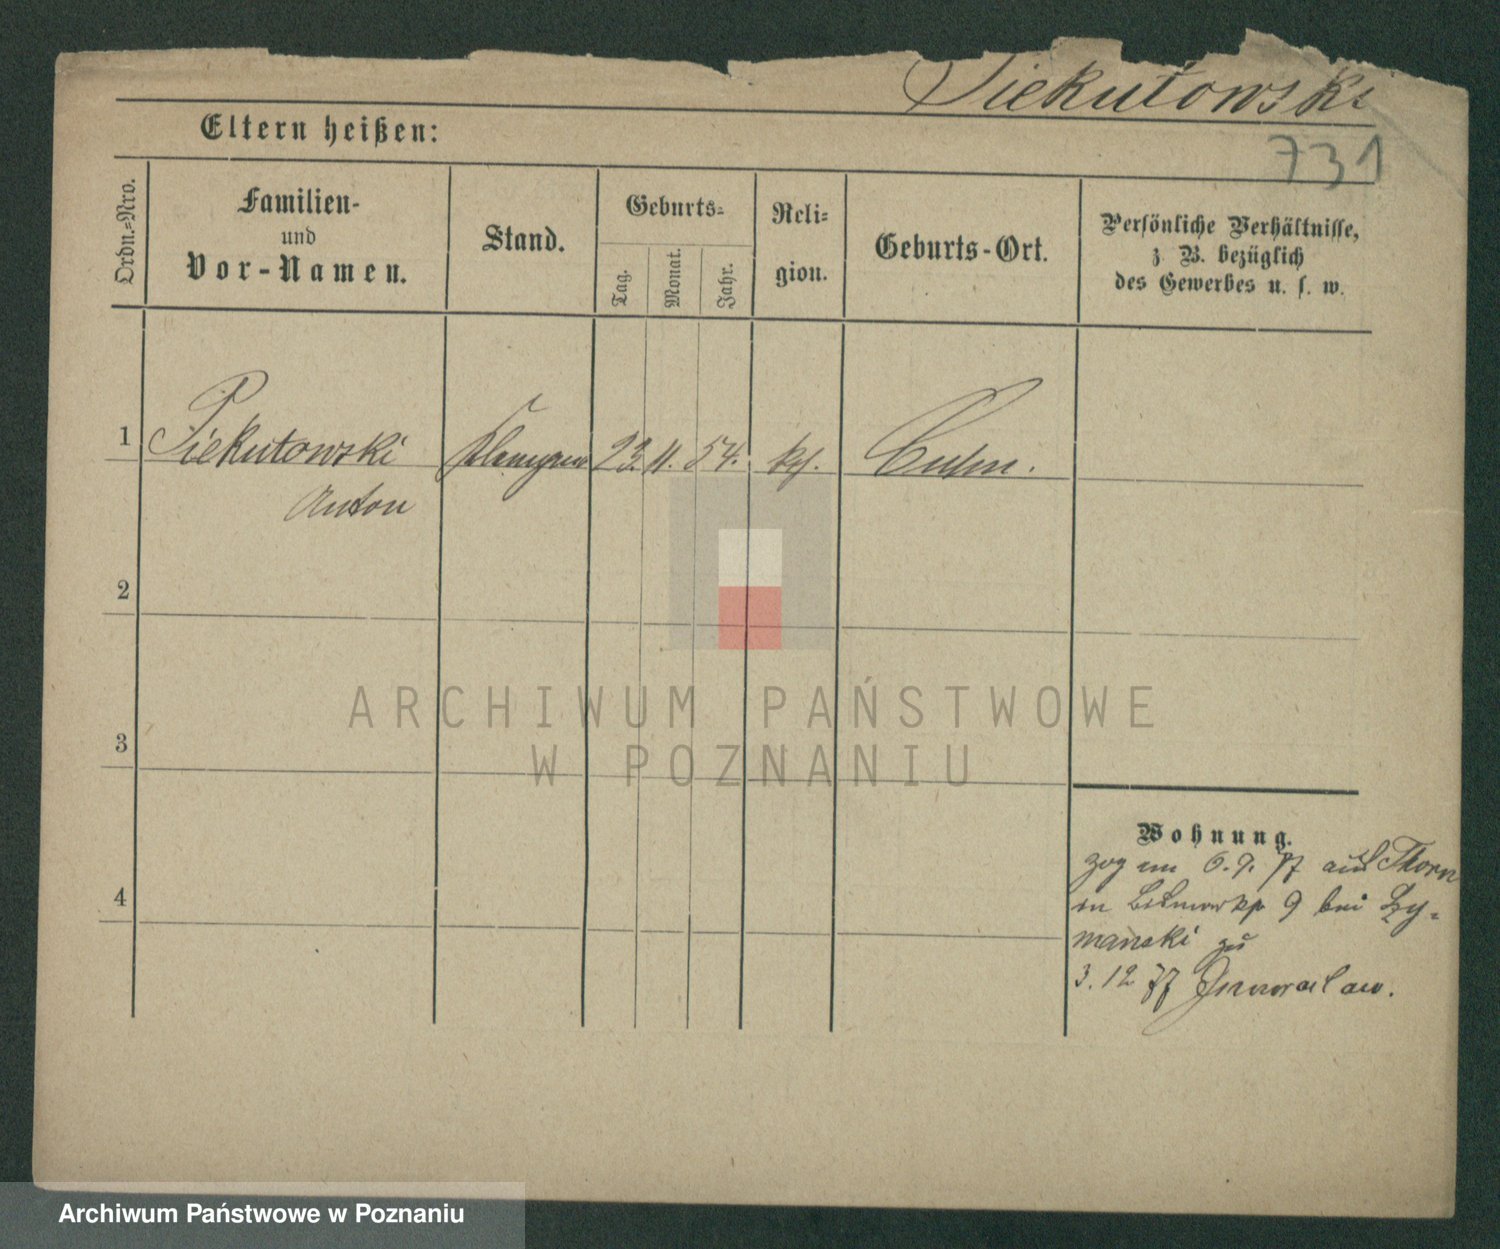 Piekutowski
731
Eltern heißen:
Ordn.=Nro.
Familien-
und
Vor-Namen.
Stand.
Geburts=
Tag.
Monat.
Jahr.
Reli=
gion.
Geburts-Ort.
Persönliche Verhältnisse,
z. B. bezüglich
des Gewerbes u. s. w.
1 Piekutowski 23. 11. 54. kth. Culm.
Anton
2
3
4
Wohnung.
zog am 6. 9. 77 aus Thorn
in 9 bei Szy=
manski zu
3. 12 77 Inowraclaw.
ARCHIWUM PAŃSTWOWE
W POZNANIU
Archiwum Państwowe w Poznaniu